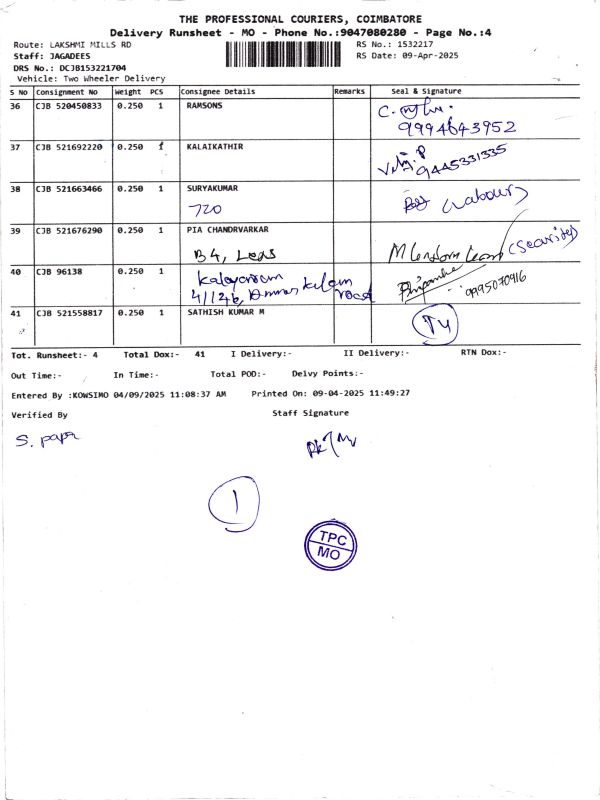 THE PROFESSIONAL COURIERS, COIMBATORE
Delivery Runsheet - MO - Phone No.:9047080280 - Page No.:4
Route: LAKSHMI MILLS RD RS No.: 1532217
Staff: JAGADEES RS Date: 09-Apr-2025
DRS No.: DCJB153221704
Vehicle: Two Wheeler Delivery
S No Consignment No Weight PCS Consignee Details Remarks Seal & Signature
36 CJB 520450833 0.250 1 RAMSONS
9994643952
37 CJB 521692220 0.250 1 KALAIKATHIR
9445331335
38 CJB 521663466 0.250 1 SURYAKUMAR
720 (Labour)
39 CJB 521676290 0.250 1 PIA CHANDRVARKAR
B4, (Security)
40 CJB 96138 0.250 1 Priyanka
road 9995070916
41 CJB 521558817 0.250 1 SATHISH KUMAR M
Tot. Runsheet:- 4 Total Dox:- 41 I Delivery:- II Delivery:- RTN Dox:-
Out Time:- In Time:- Total POD:- Delvy Points:-
Entered By :KOWSIMO 04/09/2025 11:08:37 AM Printed On: 09-04-2025 11:49:27
Verified By Staff Signature
S. papa
1
TPC
MO